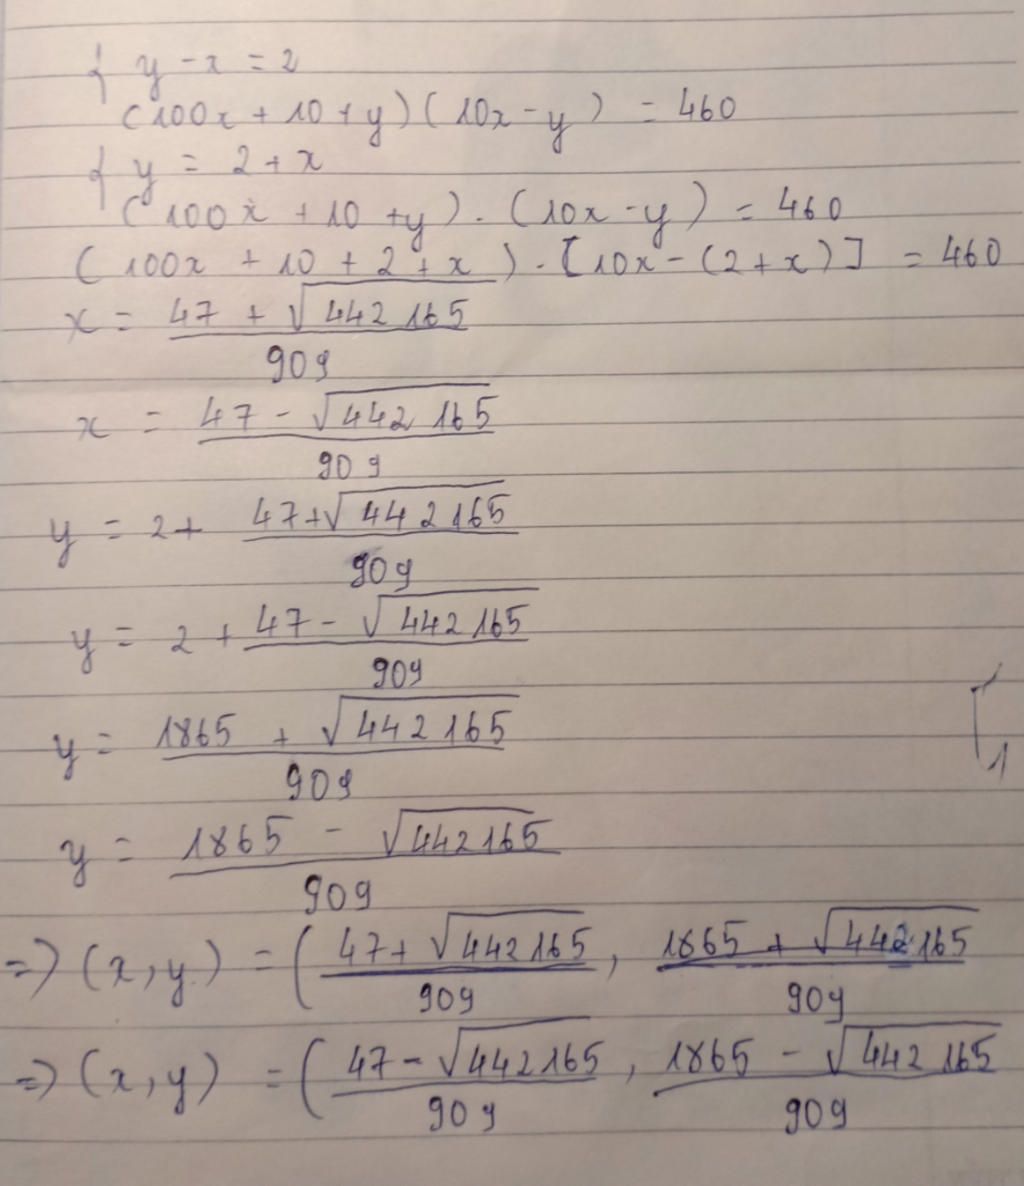 { y - x = 2
(100x + 10 + y) (10x - y) = 460
{ y = 2 + x
(100x + 10 + y) . (10x - y) = 460
(100x + 10 + 2 + x) . [10x - (2 + x)] = 460
x = \frac{47 + \sqrt{442165}}{909}
x = \frac{47 - \sqrt{442165}}{909}
y = 2 + \frac{47 + \sqrt{442165}}{909}
y = 2 + \frac{47 - \sqrt{442165}}{909}
y = \frac{1865 + \sqrt{442165}}{909}
y = \frac{1865 - \sqrt{442165}}{909}
=> (x, y) = ( \frac{47 + \sqrt{442165}}{909} , \frac{1865 + \sqrt{442165}}{909}
=> (x, y) = ( \frac{47 - \sqrt{442165}}{909} , \frac{1865 - \sqrt{442165}}{909}